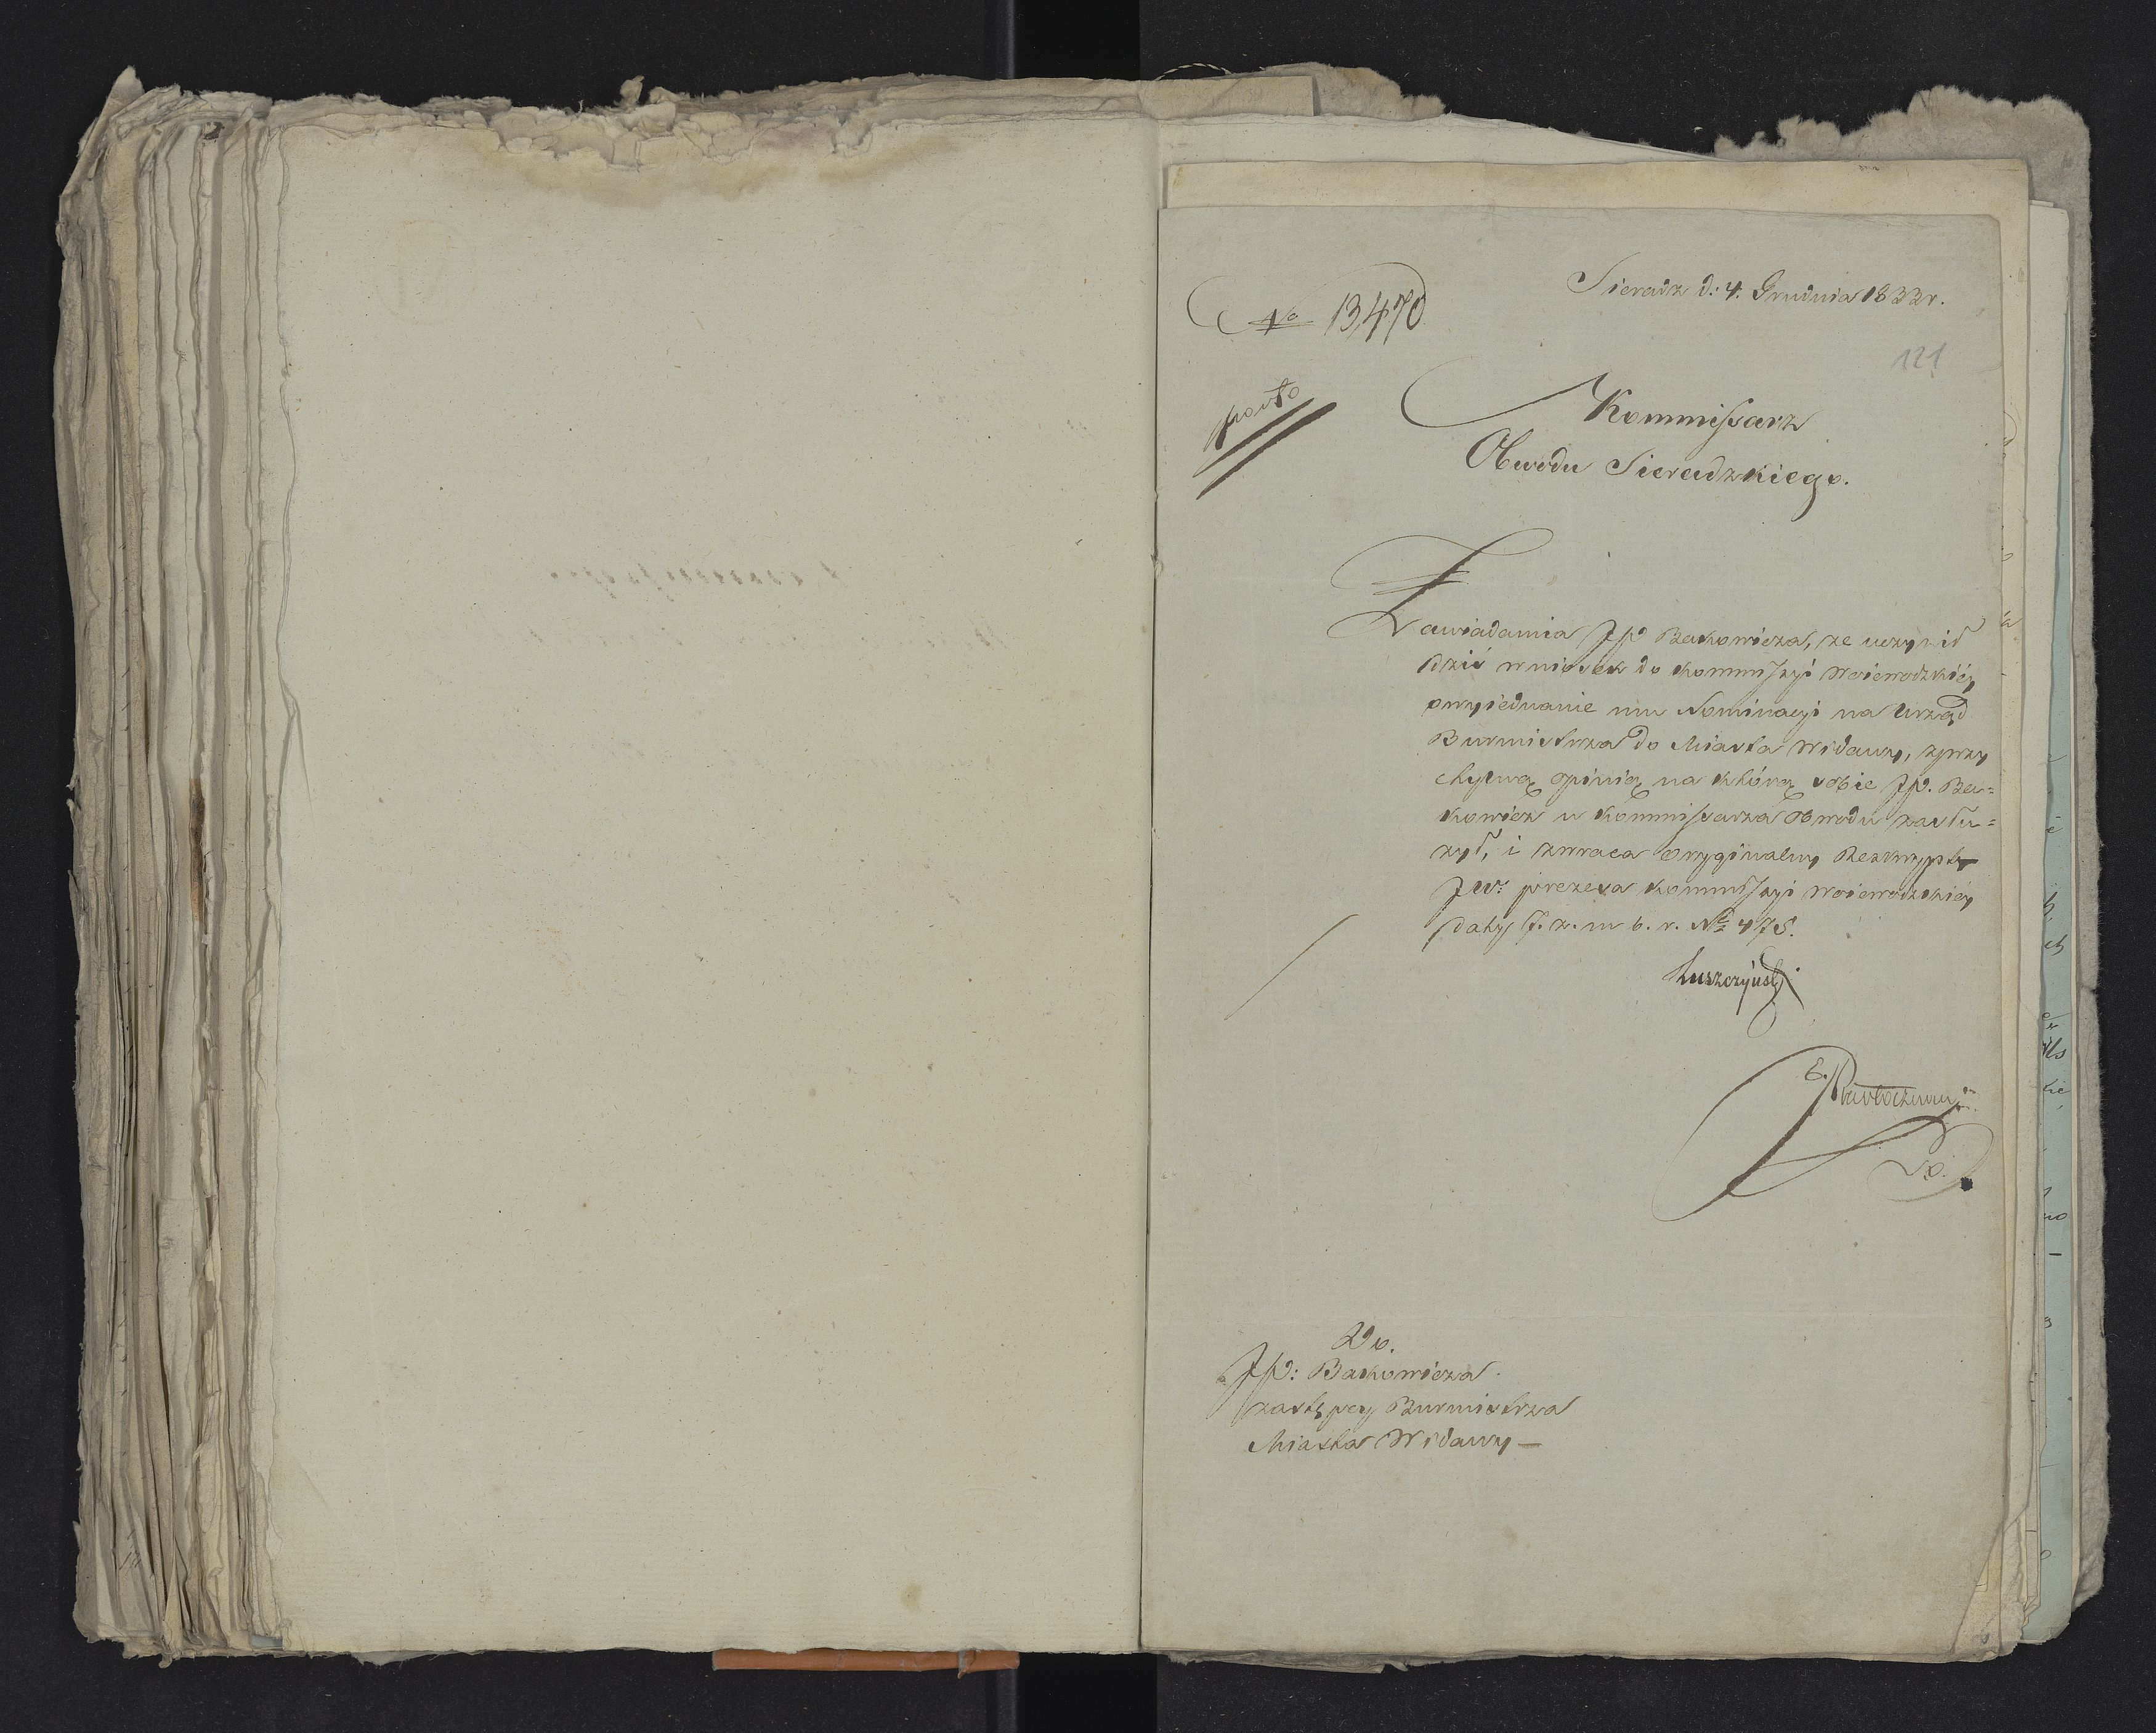 Sieradz d: 4. Grudnia 1833r.
No 13,470
121
Kommissarz
Obwodu Sieradzkiego.
Zawiadamia JP Bakowicza, że uczynił
dziś wniosek do Kommissyi Woiewodzkiéy
o wyiednanie mu Nominacyi na Urząd
Burmistrza do Miasta Widawy, z przy
chylną opinią, na którą sobie JP. Ba=
kowicz u Kommissarza Obwodu zasłu=
żył, i zwraca oryginalny Reskrypt
JW: prezesa Kommissyi Woiewodzkiey
daty 7. z. m b. r. No 475.
Do.
JP: Bakowicza
zastępcy Burmistrza
Miasta Widawy —